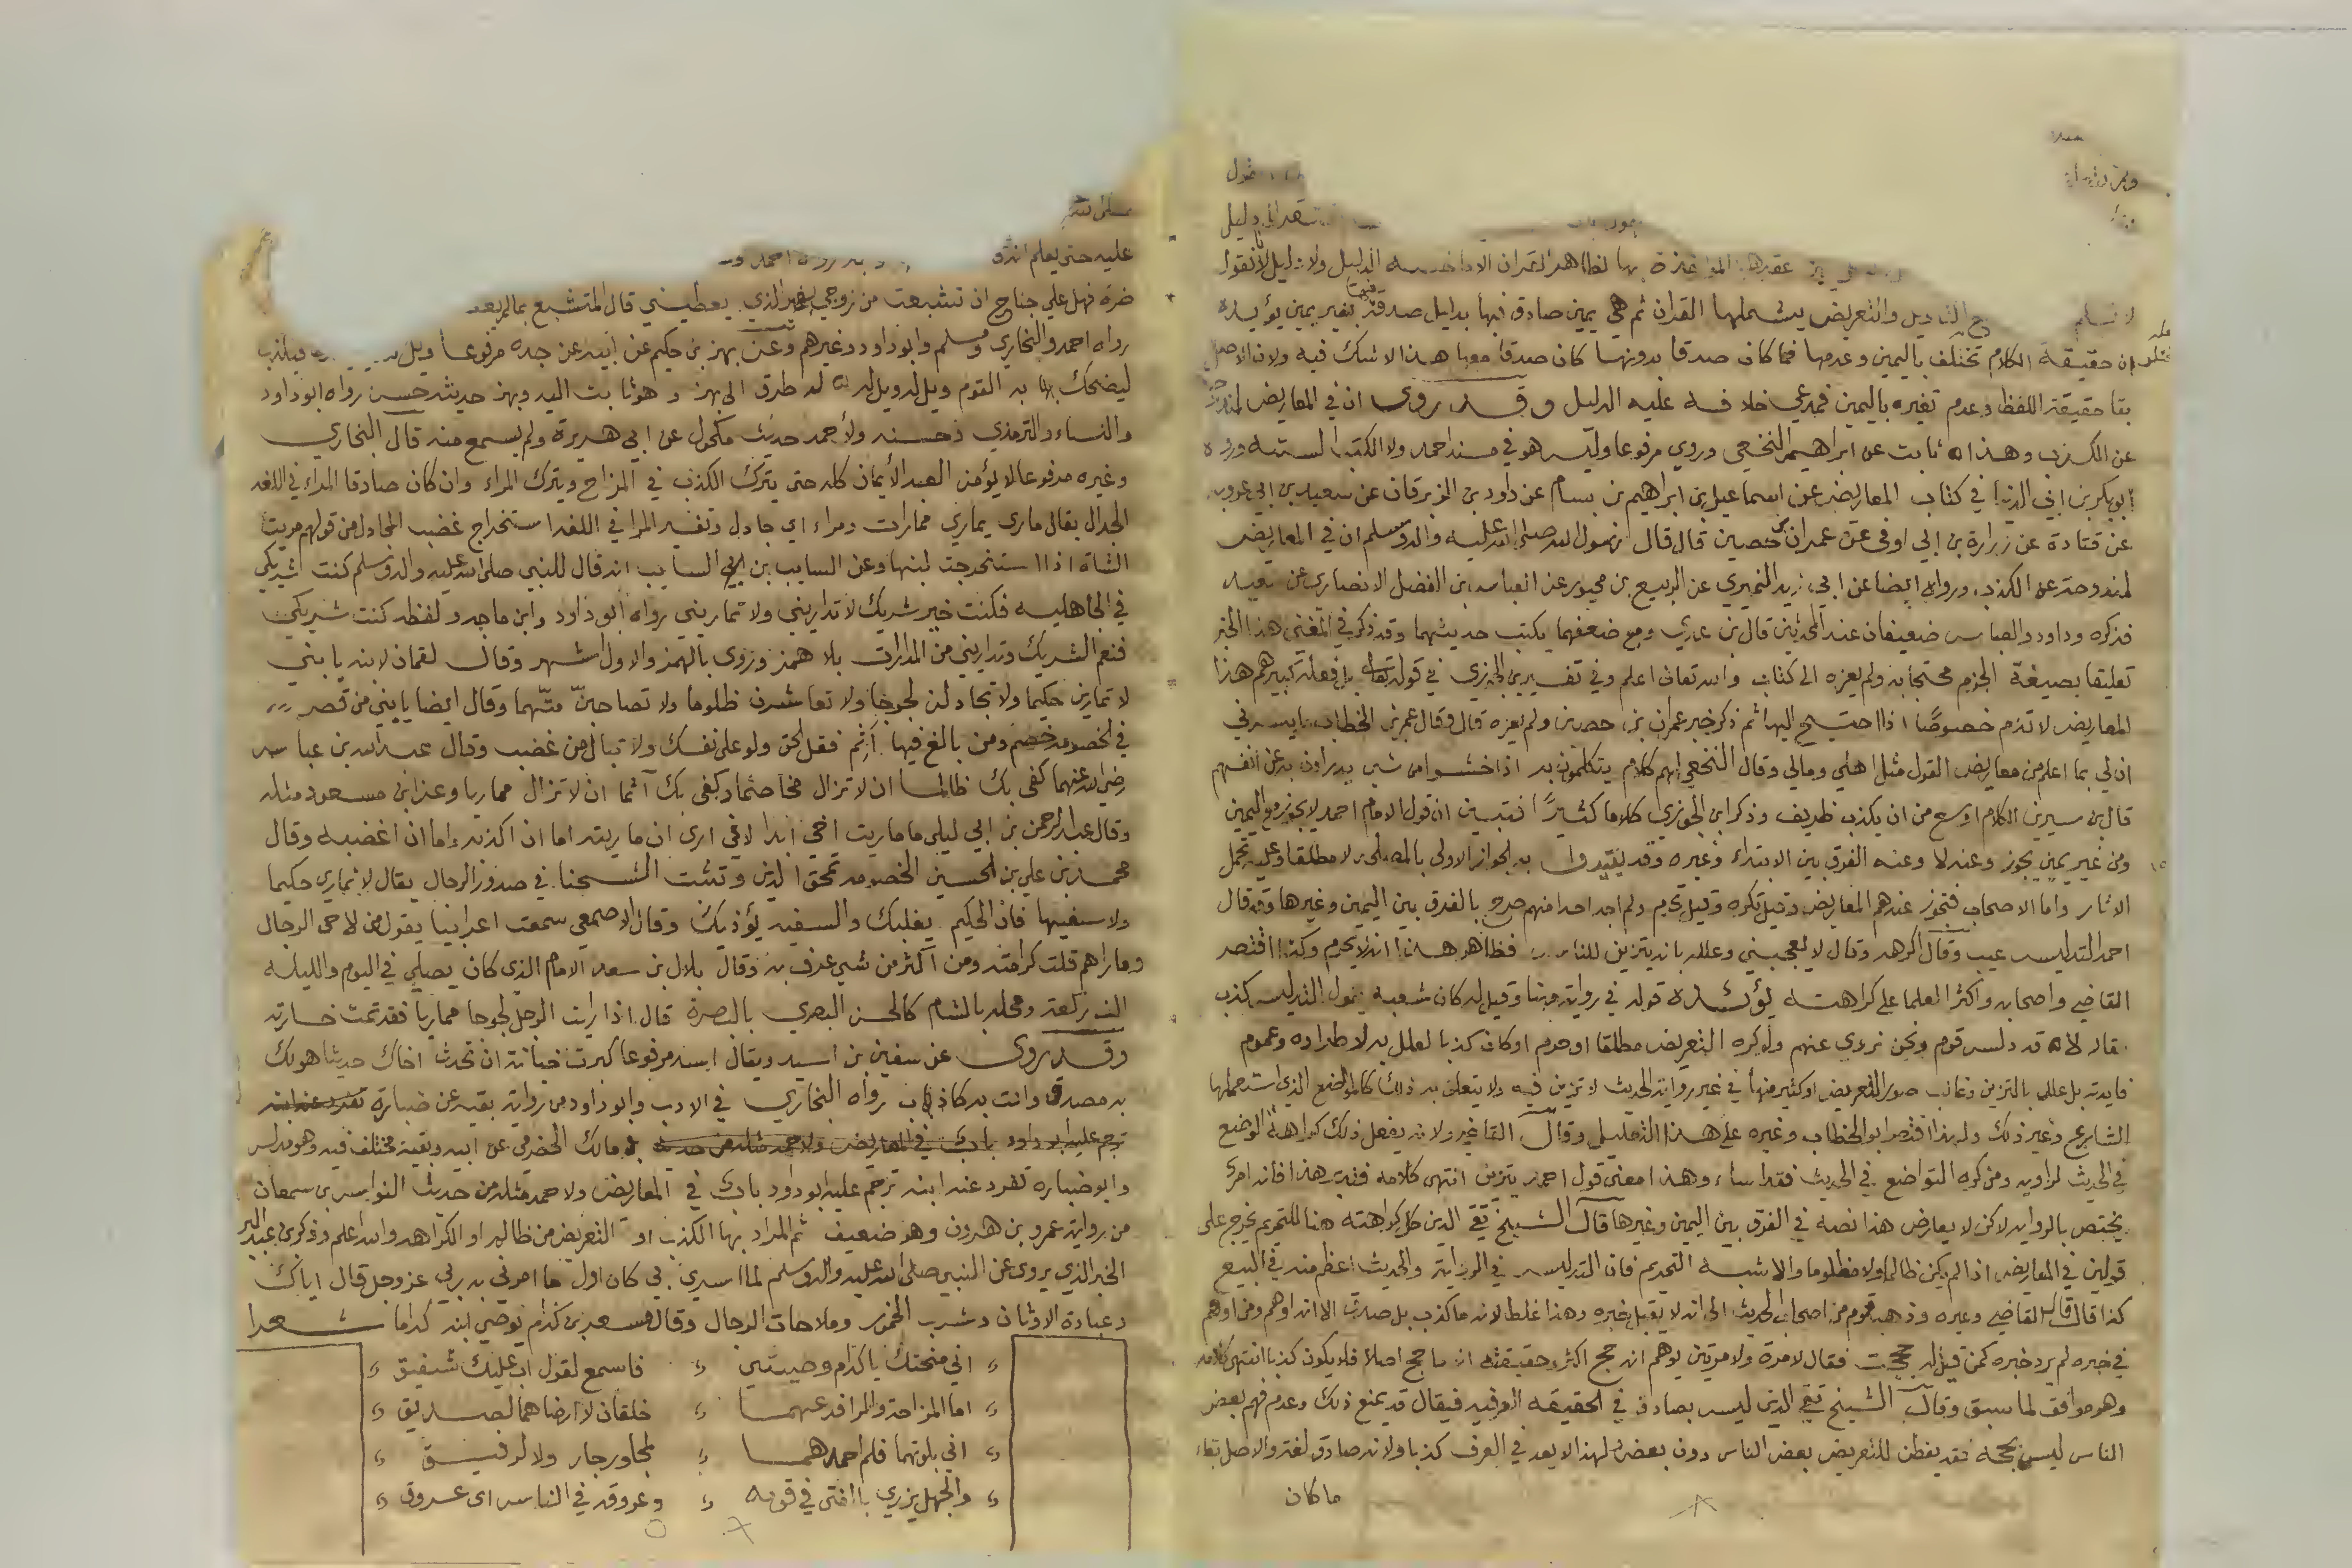 عليه حتى يعلم انه
لا نسلم التاويل والتعريض يشملها القران ثم هي يمين صادق فيها بدليل صدقه بغير يمين يؤيده
ان حقيقة الكلام تختلف باليمين وعدمها فما كان صدقا بدونها كان صدقا معها هذا لا شك فيه ولان الاصل
بقا حقيقة اللفظ وعدم تغيره باليمين فمدعي خلافه عليه الدليل وقد روى ان في المعاريض لمندوحة
عن الكذب وهذا ثابت عن ابراهيم النخعي وروي مرفوعا وليس هو في مسند احمد ولا الكتب الستة ورواه
ابو بكر بن ابي الدنيا في كتاب المعاريض عن اسماعيل بن ابراهيم بن بسام عن داود بن الزبرقان عن سعيد بن ابي عروبة
عن قتادة عن زرارة بن ابي اوفى عن عمران بن حصين قال قال رسول الله صلى الله عليه واله وسلم ان في المعاريض
لمندوحة عن الكذب ورواه ايضا عن ابي زيد النميري عن الربيع بن محبور عن العباس بن الفضل الانصاري عن سعيد
فذكره وداود والعباس ضعيفان عند المحدثين قال بن عدي ومع ضعفهما يكتب حديثهما وقد ذكر في المغني هذا الخبر
تعليقا بصيغة الجزم محتجا به ولم يعزه الى كتاب والله تعالى اعلم وفي تفسير بن الجوزي في قوله تعالى بل فعله كبيرهم هذا
المعاريض لا تذم خصوصا اذا احتيج اليها ثم ذكر خبر عمران بن حصين ولم يعزه قال وقال عمر بن الخطاب ما يسرني
ان لي بما اعلم من معاريض القول مثل اهلي ومالي وقال النخعي لهم كلام يتكلمون به اذا خشوا من شي يدراون به عن انفسهم
قال بن سيرين الكلام اوسع من ان يكذب ظريف وذكر ابن الجوزي كلاما كثيرا فتبين ان قول الامام احمد لا يجوز مع اليمين
ومن غير يمين يجوز وعنه لا وعنه الفرق بين الابتداء وغيره وقد يقيدوا به الجواز الاولى بالمصلحة لا مطلقا وعليه تحمل
الاثار واما الاصحاب فتجوز عندهم المعاريض وقيل تكره وقيل تحرم ولم اجد احدا منهم صرح بالفرق بين اليمين وغيرها وقد قال
احمد التدليس عيب وقال اكرهه وقال لا يعجبني وعلله بانه يتزين للناس فظاهر هذا انه لا يحرم وكذا اقتصر
القاضي واصحابه واكثر العلما على كراهته يؤيده قوله في رواية مهنا وقيل له كان شعبة يقول التدليس كذب
فقال لا قد دلس قوم ونحن نروي عنهم ولو كره التعريض مطلقا او حرم او كان كذبا لعلل به لاطراده وعموم
فايدته بل علل بالتزين وغالب صور التعريض او كثير منها في غير رواية الحديث لا تزين فيه ولا يتعلق به ذلك كالمواضع الذي استعملها
الشارع وغير ذلك ولهذا اقتصر ابو الخطاب وغيره على هذا التعليل وقال القاضي ولانه يفعل ذلك كراهة الوضع
في الحديث لراويه ومن كره التواضع في الحديث فقد اساء وهذا معنى قول احمد يتزين انتهى كلامه فتدبر هذا فانه امرى
يختص بالرواية لاكن لا يعارض هذا نصه في الفرق بين اليمين وغيرها قال الشيخ تقي الدين كل كراهته هنا للتحريم يخرج على
قولين في المعاريض اذا لم يكن ظالما ولا مظلوما والاشبه التحريم فان التدليس في الرواية والحديث اعظم منه في البيع
كذا قال قال القاضي وغيره وذهب قوم من اصحاب الحديث الى انه لا يقبل خبره وهذا غلط لانه ما كذب بل صدق الا انه اوهم ومن اوهم
في خبره لم يرد خبره كمن قيل له حججت فقال لا مرة ولا مرتين يوهم انه حج اكثر وحقيقته انه ما حج اصلا فلا يكون كذبا انتهى كلامه
وهو موافق لما سبق وقال الشيخ تقي الدين ليس بصادق في الحقيقه العرفيه فيقال قد يمنع ذلك وعدم فهم بعض
الناس ليس بحجة فقد يفطن للتعريض بعض الناس دون بعض ولهذا لا يعد في العرف كذبا ولانه صادق لغة والاصل بقاء
ما كان
ضرة فهل علي جناح ان تشبعت من زوجي بغير الذي يعطيني قال المتشبع بما لم يعط
رواه احمد والبخاري ومسلم وابو داود وغيرهم وعن بهز بن حكيم عن ابيه عن جده مرفوعا ويل
ليضحك به القوم ويل له ويل له له طرق الى بهز وهو ثابت اليه وبهز حديثه حسن رواه ابو داود
والنساء والترمذي وحسنه ولأحمد حديث مكحول عن ابي هريرة ولم يسمع منه قال البخاري
وغيره مرفوعا لا يؤمن العبد الأيمان كله حتى يترك الكذب في المزاح ويترك المراء وان كان صادقا المراء في اللغه
الجدال يقال مارى يماري ممارات ومراء اي جادل وتفسير المرا في اللغه استخراج غضب المجادل من قولهم مريت
الشاة اذا استخرجت لبنها وعن السايب بن ابي السايب انه قال للنبي صلى الله عليه واله وسلم كنت شريكي
في الجاهليه فكنت خير شريك لا تداريني ولا تماريني رواه ابو داود وابن ماجه ولفظه كنت شريكي
فنعم الشريك وتداريني من المدارات بلا همز وروى بالهمز والاول اشهر وقال لقمان لابنه يا بني
لا تمارين حكيما ولا تجادلن لجوجا ولا تعاشرن ظلوما ولا تصاحبن متهما وقال ايضا يا بني من قصر
في الخصومه خصم ومن بالغ فيها أثم فقل الحق ولو على نفسك ولا تبال من غضب وقال عبد الله بن عباس
رضي الله عنهما كفى بك ظالما ان لا تزال مخاصما وكفى بك آثما ان لا تزال مماريا وعن ابن مسعود مثله
وقال عبد الرحمن بن ابي ليلى ما ماريت اخي ابدا لاني ارى ان ماريته اما ان اكذبه واما ان اغضبه وقال
محمد بن علي بن الحسين الخصومه تمحق الدين وتثبت الشحنا في صدور الرجال يقال لا تماري حكيما
ولا سفيها فان الحكيم يغلبك والسفيه يؤذيك وقال الاصمعي سمعت اعرابيا يقول من لاحى الرجال
وماراهم قلت كرامته ومن اكثر من شي عرف به وقال بلال بن سعد الامام الذي كان يصلي في اليوم والليله
الف ركعة ومحله بالشام كالحسن البصري بالبصرة قال اذا رايت الرجل لجوجا مماريا فقد تمت خسارته
وقد روى عن سفين بن اسيد ويقال اسد مرفوعا كبرت خيانة ان تحدث اخاك حديثا هو لك
به مصدق وانت به كاذب رواه البخاري في الادب وابو داود من رواية بقيه عن ضبارة تفرد عنه ابنه
ترجم عليه ابو داود باب في المعاريض ولاحمد مثله من حديث بن مالك الحضرمي عن ابيه وبقية مختلف فيه وهو مدلس
وابو ضباره تفرد عنه ابنه ترجم عليه ابو داود باب في المعاريض ولاحمد مثله من حديث النواس بن سمعان
من رواية عمرو بن هرون وهو ضعيف ثم المراد بها الكذب او التعريض من ظالم او الكراهه والله اعلم وذكر بن عبد البر
الخبر الذي يروى عن النبي صلى الله عليه واله وسلم لما اسري بي كان اول ما امرني به ربي عز وجل قال اياك
وعبادة الاوثان وشرب الخمور وملاحات الرجال وقال مسعر بن كدام يوصي ابنه كداما شعرا
اني منحتك يا كدام وصيتي فاسمع لقول اب عليك شفيق
اما المزاحة والمرا فدعهما خلقان لا ارضاهما لصديق
اني بلوتهما فلم احمدهما لمجاور جار ولا لرفيق
والجهل يزري بالفتى في قومه وعروقه في الناس اي عروق